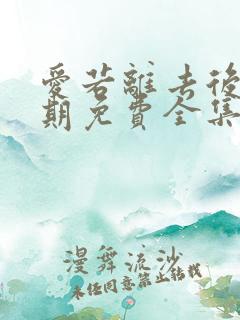 愛若離去後
期免費全集
漫舞流沙
未经同意禁止转载